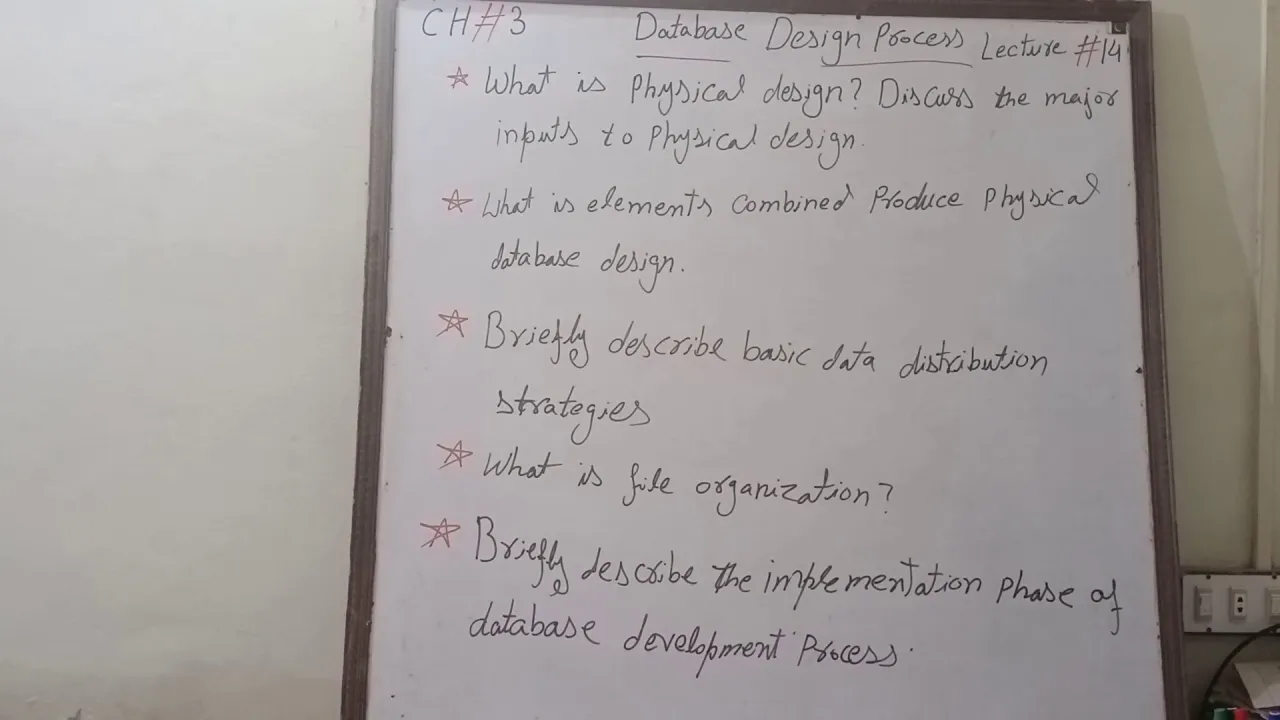 CH#3 Database Design Process Lecture #14
☆ What is Physical design? Discuss the major
inputs to Physical design.
☆ What is elements combined Produce Physical
database design.
☆ Briefly describe basic data distribution
strategies
☆ What is file organization?
☆ Briefly describe the implementation Phase of
database development Process.